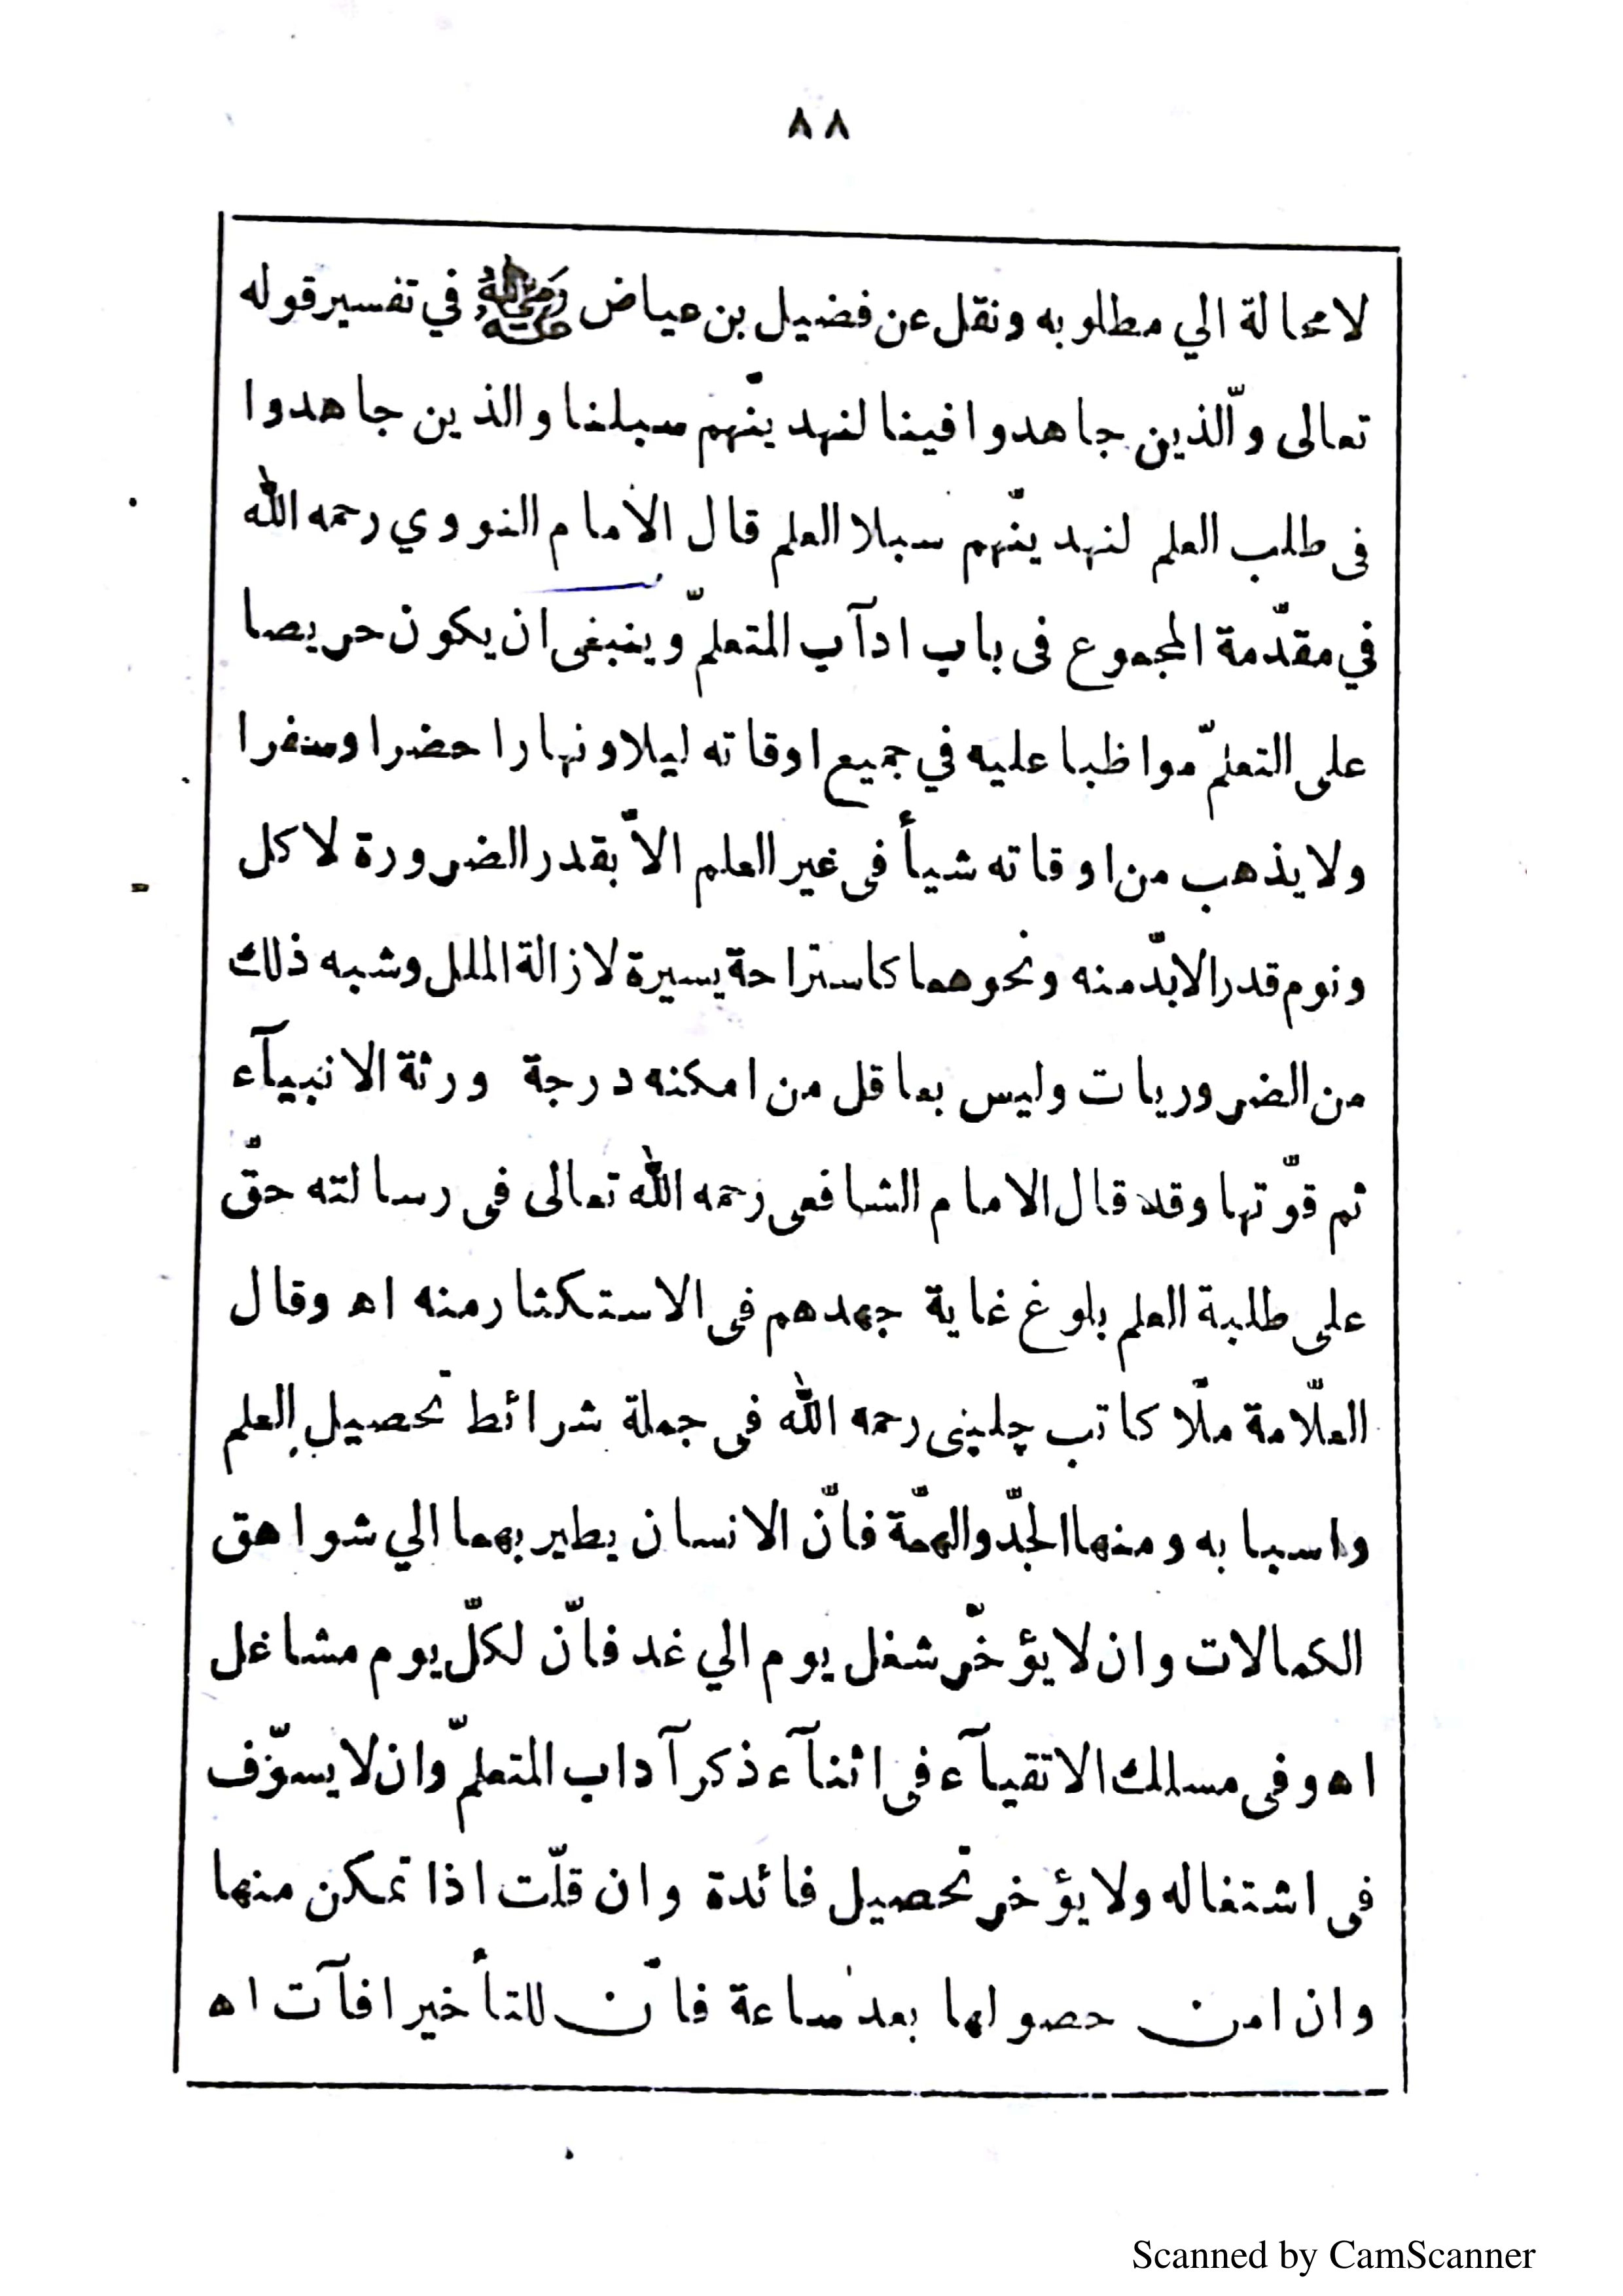 ٨٨
لا محالة الي مطلوبه ونقل عن فضيل بن عياض رحمة الله عليه في تفسير قوله
تعالى والّذين جاهدوا فينا لنهدينّهم سبلنا والذين جاهدوا
فى طلب العلم لنهدينّهم سبلا العلم قال الامام النووي رحمه الله
في مقدّمة المجموع فى باب ادآب المتعلّم وينبغى ان يكون حريصا
على التعلّم مواظبا عليه في جميع اوقاته ليلا ونهارا حضرا وسفرا
ولا يذهب من اوقاته شيأ فى غير العلم الاّ بقدر الضرورة لاكل
ونوم قدر الابدّ منه ونحوهما كاستراحة يسيرة لازالة الملل وشبه ذلك
من الضروريات وليس بعاقل من امكنه درجة ورثة الانبيآء
ثم فوّتها وقد قال الامام الشافعى رحمه الله تعالى فى رسالته حقّ
على طلبة العلم بلوغ غاية جهدهم فى الاستكثار منه اه وقال
العلّامة ملّا كاتب چلبى رحمه الله فى جملة شرائط تحصيل العلم
واسبابه ومنها الجدّ والهمّة فانّ الانسان يطير بهما الي شواهق
الكمالات وان لا يؤخّر شغل يوم الي غد فانّ لكلّ يوم مشاغل
اه وفى مسالك الاتقيآء فى اثنآء ذكر آداب المتعلّم وان لا يسوّف
فى اشتغاله ولا يؤخر تحصيل فائدة وان قلّت اذا تمكن منها
وان امن حصولها بعد ساعة فانّ للتأخير افآت اه
Scanned by CamScanner